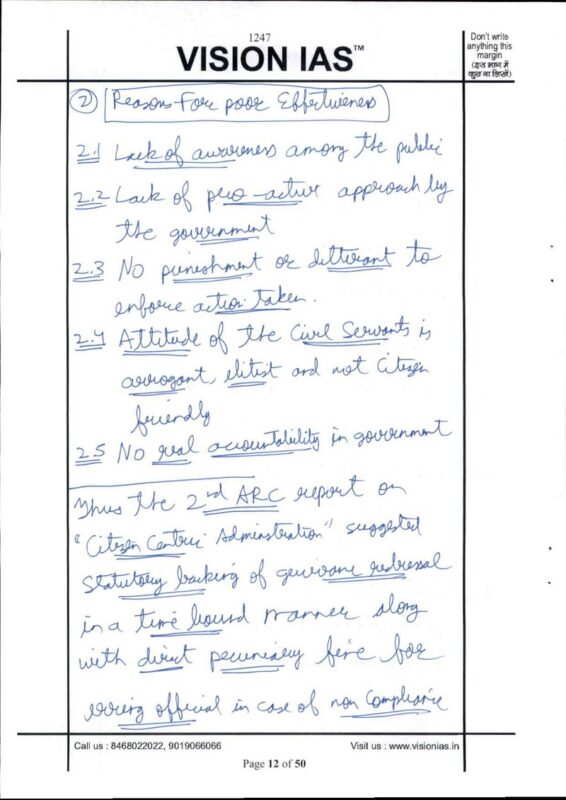 1247
VISION IAS™
Don't write
anything this
margin
(इस भाग में
कुछ ना लिखें)
② Reasons For poor Effectiveness
2.1 Lack of awareness among the public
2.2 Lack of pro-active approach by
the government
2.3 No punishment or ditterant to
enforce action taken.
2.4 Attitude of the Civil Servants is
arrogant, elitest and not Citizen
friendly
2.5 No real accountability in government
Thus the 2nd ARC report on
"Citizen Centric Adminstration" suggested
Statutory backing of grievance redressal
in a time bound manner along
with direct pecuniary fine for
erring official in case of non Compliance
Call us : 8468022022, 9019066066
Visit us : www.visionias.in
Page 12 of 50